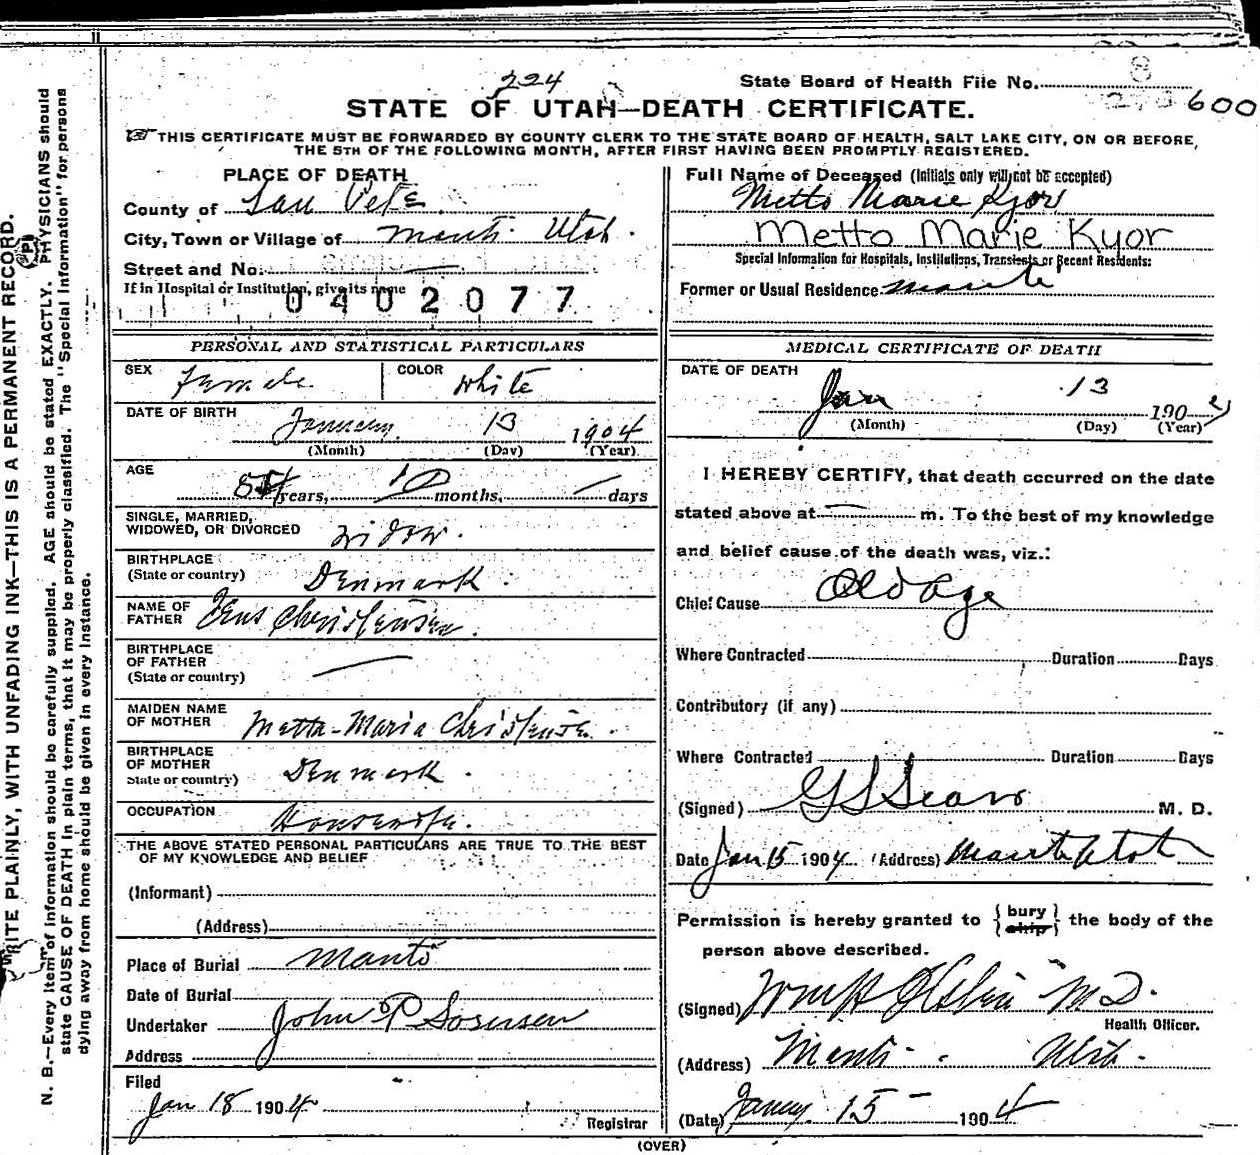 224
State Board of Health File No.
600
STATE OF UTAH—DEATH CERTIFICATE.
THIS CERTIFICATE MUST BE FORWARDED BY COUNTY CLERK TO THE STATE BOARD OF HEALTH, SALT LAKE CITY, ON OR BEFORE,
THE 5TH OF THE FOLLOWING MONTH, AFTER FIRST HAVING BEEN PROMPTLY REGISTERED.
WRITE PLAINLY, WITH UNFADING INK—THIS IS A PERMANENT RECORD.
N. B.—Every item of information should be carefully supplied. AGE should be stated EXACTLY. PHYSICIANS should
state CAUSE OF DEATH in plain terms, that it may be properly classified. The "Special Information" for persons
dying away from home should be given in every instance.
PLACE OF DEATH
County of San Pete
City, Town or Village of Manti Utah.
Street and No.
If in Hospital or Institution, give its name
0402077
PERSONAL AND STATISTICAL PARTICULARS
SEX Female COLOR White
DATE OF BIRTH 13 1904
(Month) (Day) (Year)
AGE years, 10 months, days
SINGLE, MARRIED,
WIDOWED, OR DIVORCED Widow.
BIRTHPLACE
(State or country) Denmark.
NAME OF
FATHER Jens Christensen.
BIRTHPLACE
OF FATHER
(State or country)
MAIDEN NAME
OF MOTHER Metta-Maria
BIRTHPLACE
OF MOTHER
State or country) Denmark.
OCCUPATION Housewife.
THE ABOVE STATED PERSONAL PARTICULARS ARE TRUE TO THE BEST
OF MY KNOWLEDGE AND BELIEF
(Informant)
(Address)
Place of Burial Manti
Date of Burial
Undertaker John P Sorensen
Address
Filed
Jan 18 1904
Registrar
Full Name of Deceased (Initials only will not be accepted)
Metto Marie Kjor
Metto Marie Kyor
Special Information for Hospitals, Institutions, Transients or Recent Residents:
Former or Usual Residence Manti
MEDICAL CERTIFICATE OF DEATH
DATE OF DEATH
Jan 13 190
(Month) (Day) (Year)
I HEREBY CERTIFY, that death occurred on the date
stated above at m. To the best of my knowledge
and belief cause of the death was, viz.:
Chief Cause Old age
Where Contracted Duration Days
Contributory (if any)
Where Contracted Duration Days
(Signed) M. D.
Date Jan 15 1904 (Address) Manti Utah
Permission is hereby granted to {bury ship} the body of the
person above described.
(Signed) M D.
Health Officer.
(Address) Manti Utah.
(Date) 15 1904
(OVER)